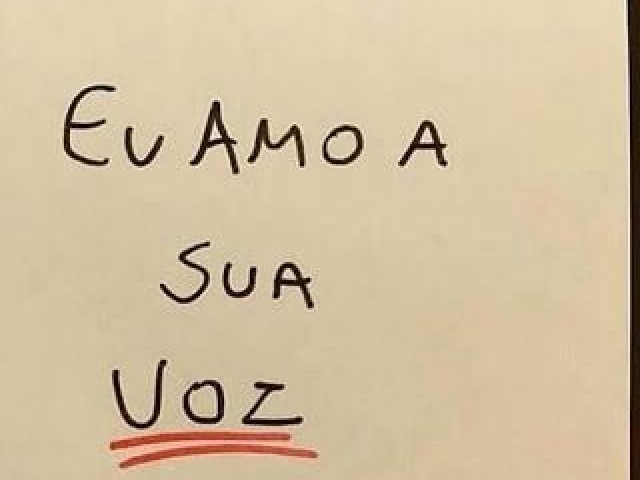 EU AMO A
SUA
VOZ